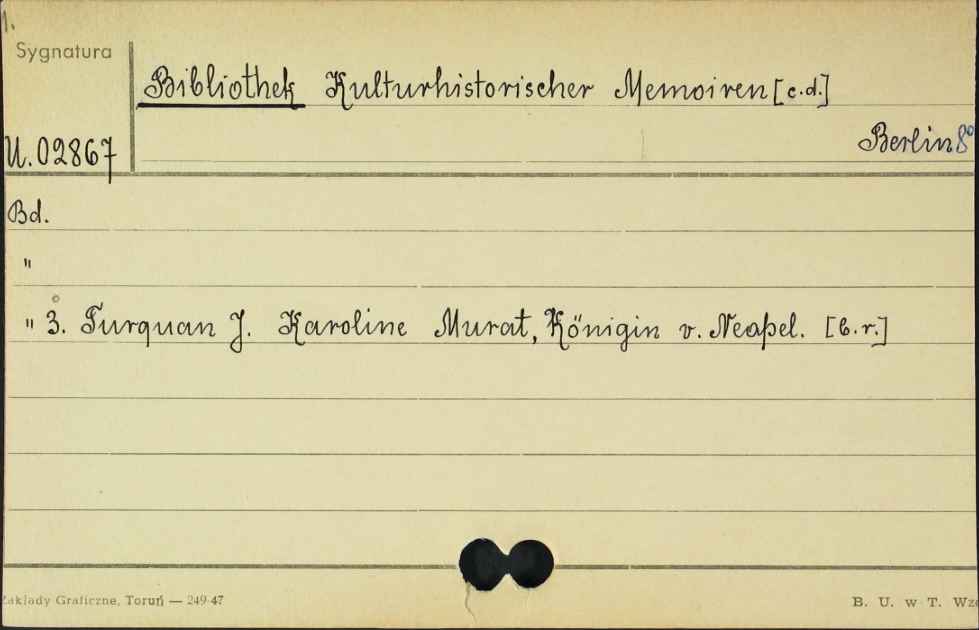 1.
Sygnatura
Bibliothek Kulturhistorischer Memoiren [c.d.]
Berlin 8°
U.02867
Bd.
"
" 3. Turquan J. Karoline Murat, Königin v. Neapel. [b.r.]
Zakłady Graficzne, Toruń — 249-47
B. U. w T. Wzó